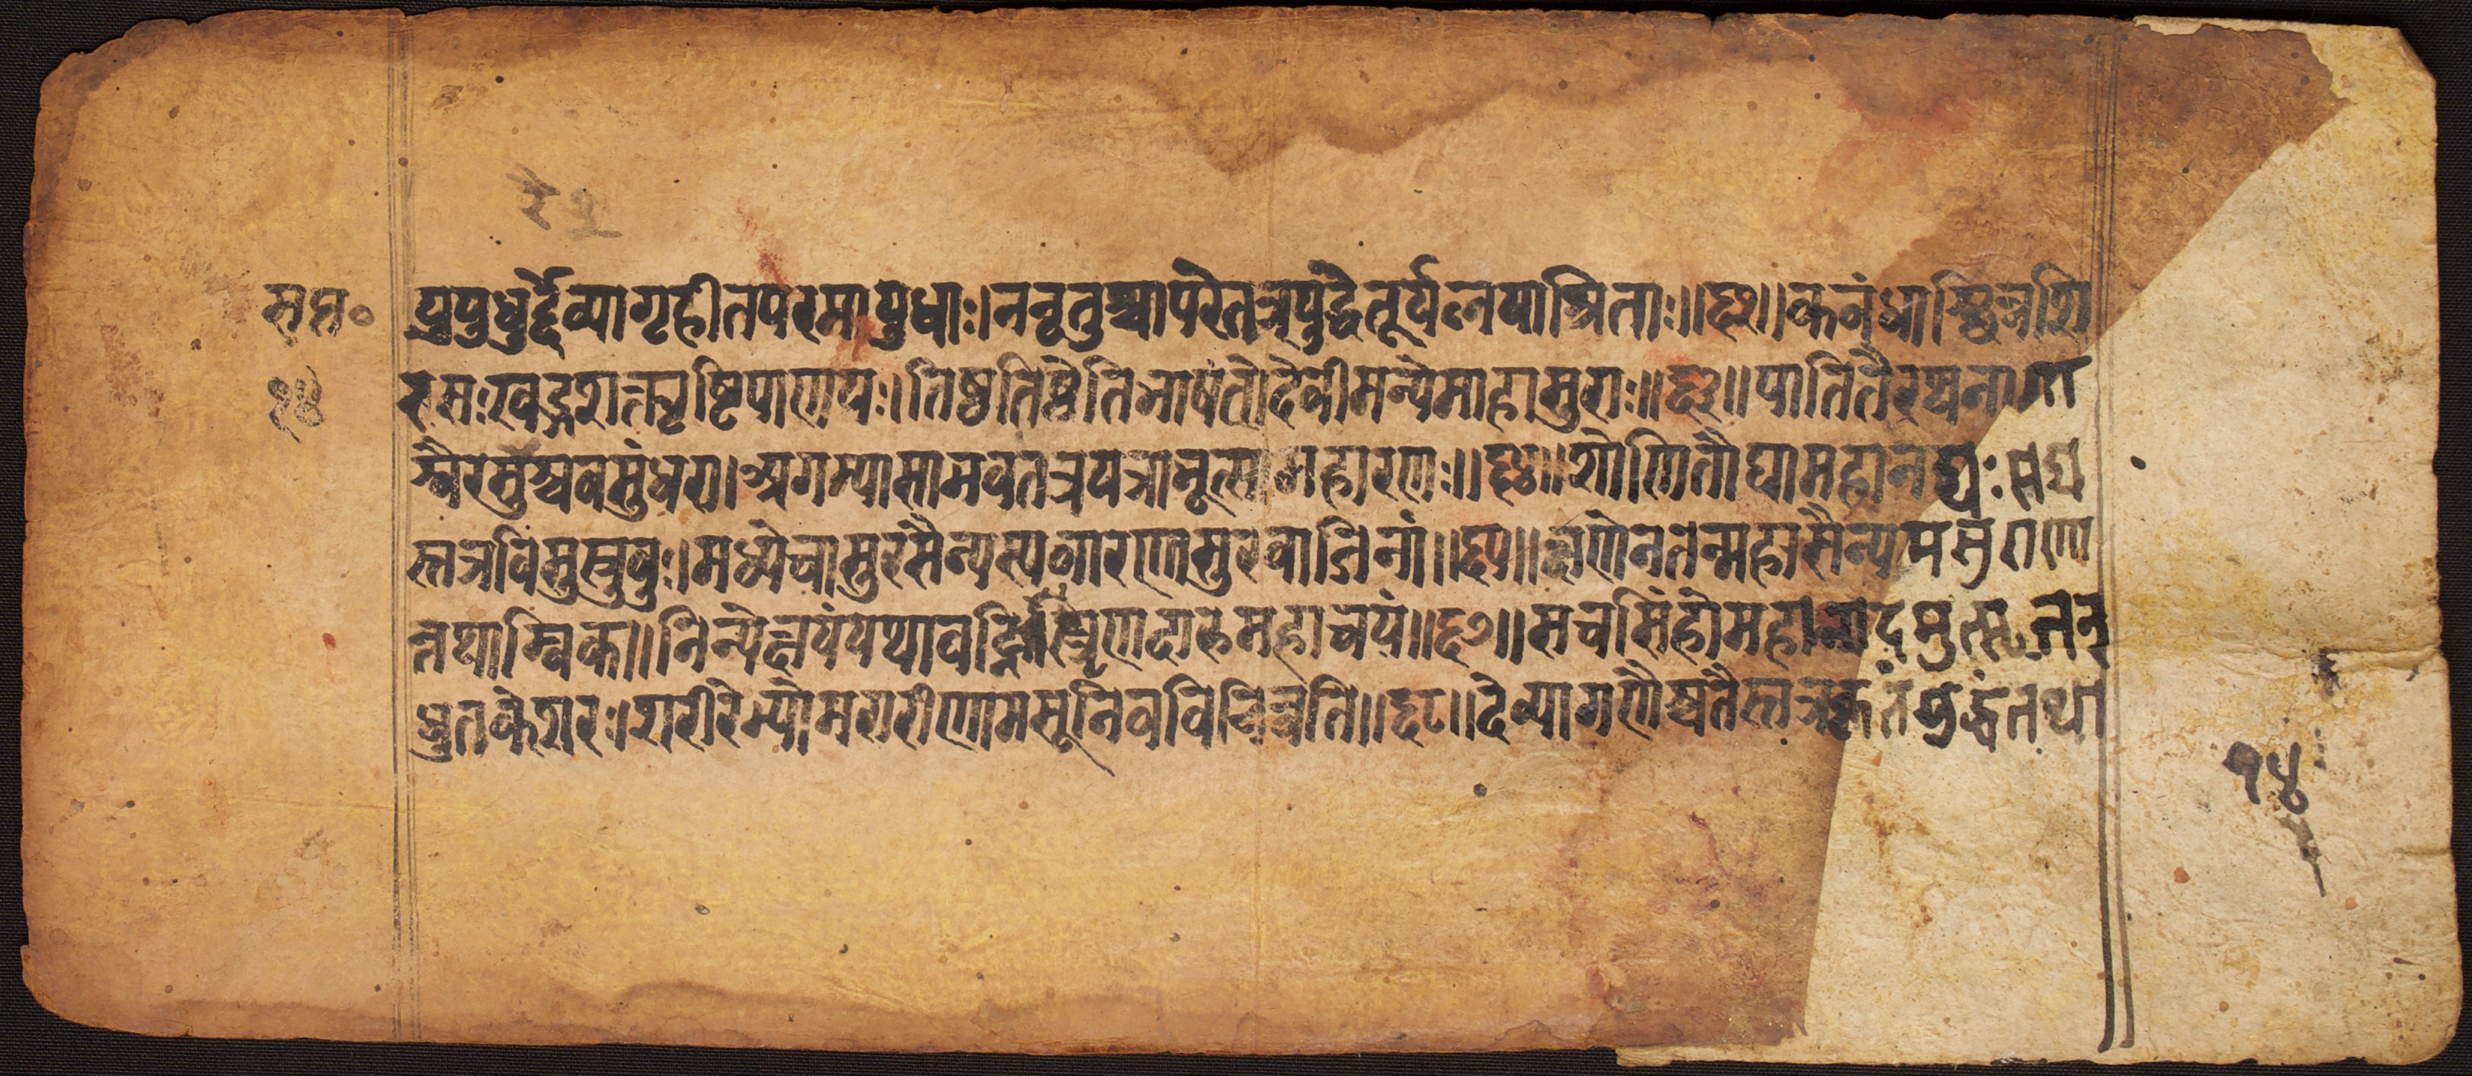 २१
सप्त॰
१४
पुयुधुर्द्देव्यागृहीतपरमायुधाः।ननृतुश्चापरेतत्रयुद्धेतूर्यलयाश्रिताः॥६३॥कबंधाश्छिन्नशि
रसःखड्गशक्त्यृष्टिपाणयः।तिष्ठतिष्ठेतिभाषंतोदेवीमन्येमाहासुराः॥६३॥पातितैरथनागा
श्वैरसुरैश्चवसुंधरा।अगम्यासाभवतत्रयत्राभूत्समहारणः॥६४॥शोणितौघामहानद्यःसद्य
स्तत्रविसुस्रुवुः।मध्येचासुरसैन्यस्यवारणासुरवाजिनां॥६५॥क्षणेनतन्महासैन्यमसुराणा
न्तथाम्बिका॥निन्येक्षयंयथावह्निस्तृणदारुमहाचयं॥६७॥सचसिंहोमहानादमुत्सृजन्
धुतकेशरः।शरीरेभ्योमरारीणामसूनिवविचिन्वति॥६८॥देव्यागणैश्चतैस्तत्रकृतंयुद्धंतथा
१४